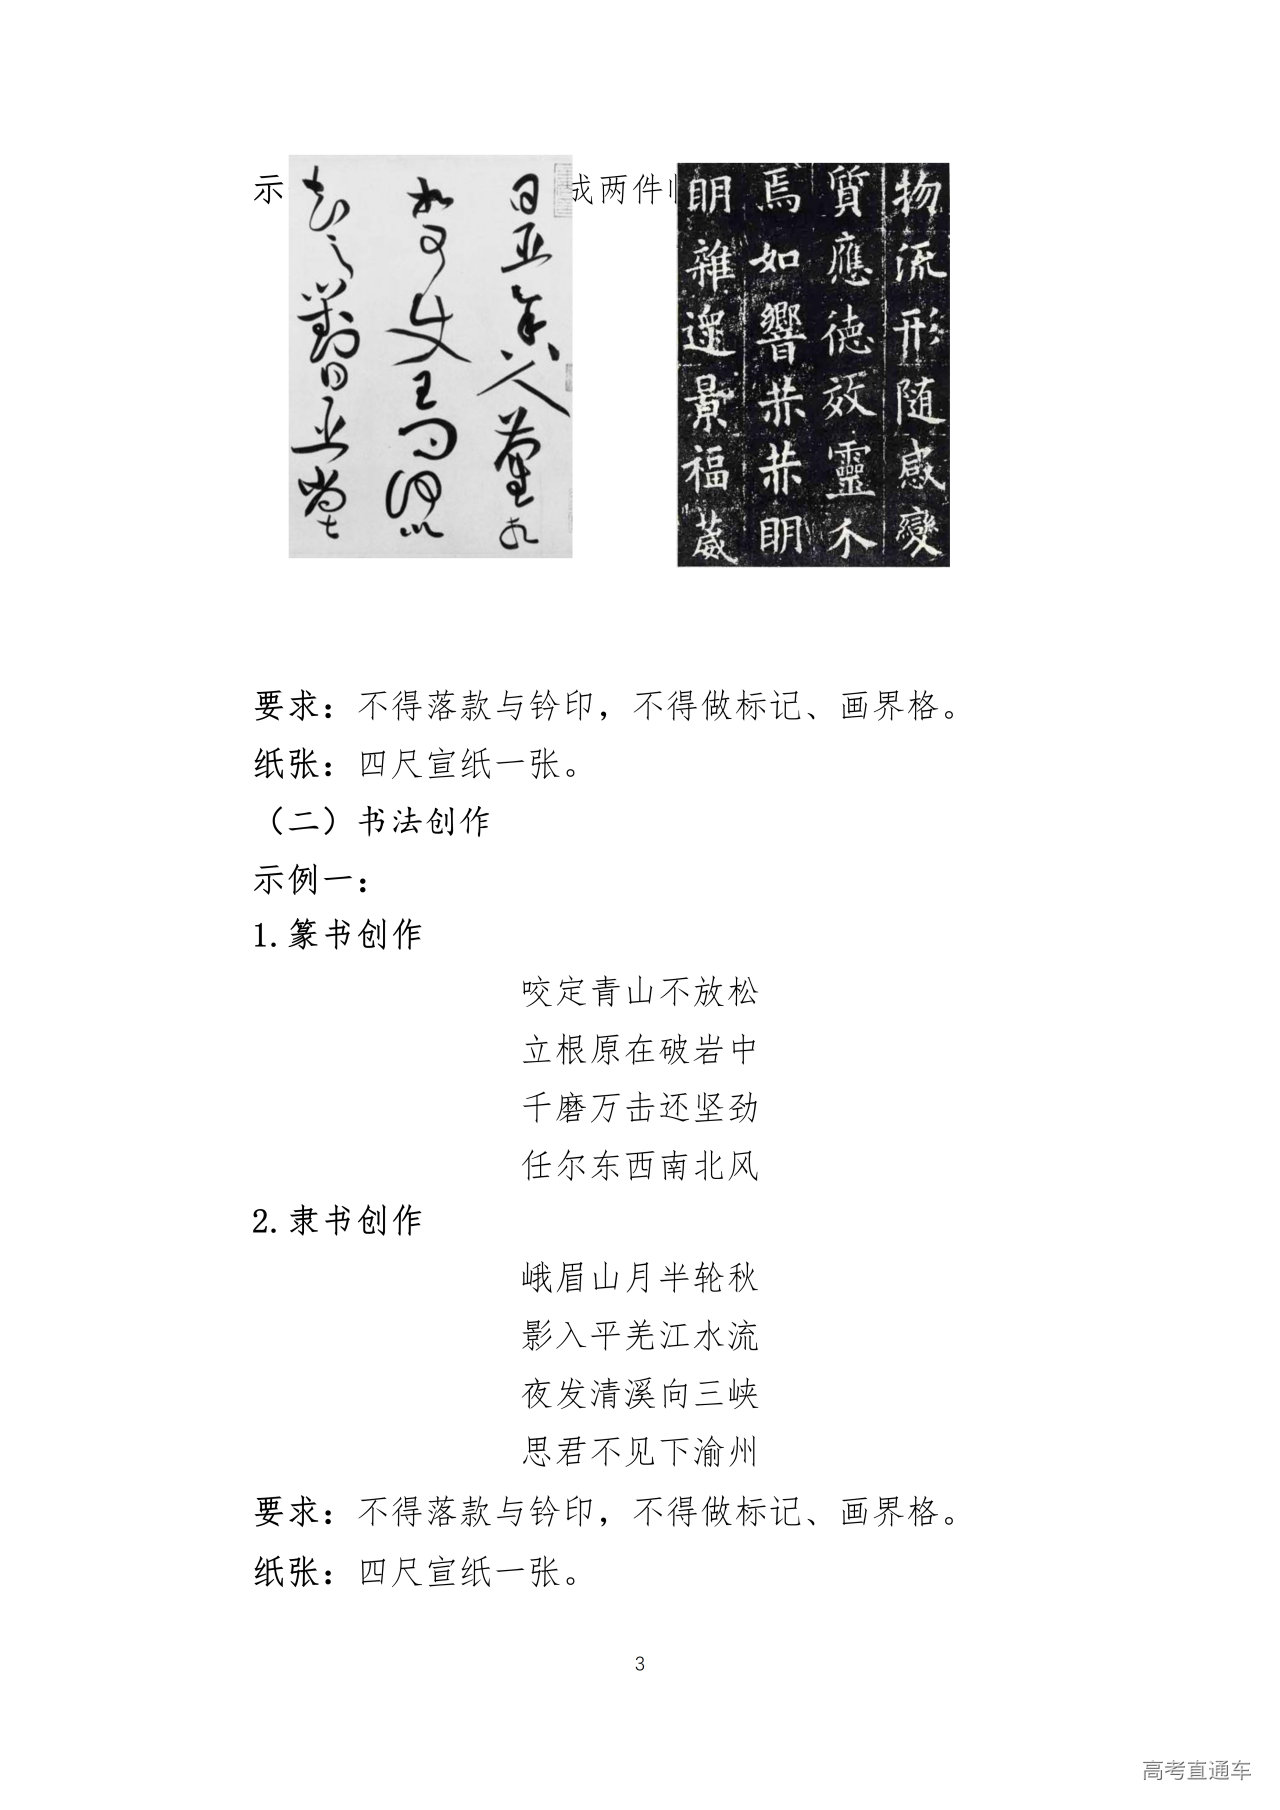 示 成两件
物流形随感變
質應德效靈不
焉如響赫赫明
明雜遝景福葳
要求：不得落款与钤印，不得做标记、画界格。
纸张：四尺宣纸一张。
（二）书法创作
示例一：
1.篆书创作
咬定青山不放松
立根原在破岩中
千磨万击还坚劲
任尔东西南北风
2.隶书创作
峨眉山月半轮秋
影入平羌江水流
夜发清溪向三峡
思君不见下渝州
要求：不得落款与钤印，不得做标记、画界格。
纸张：四尺宣纸一张。
3
高考直通车